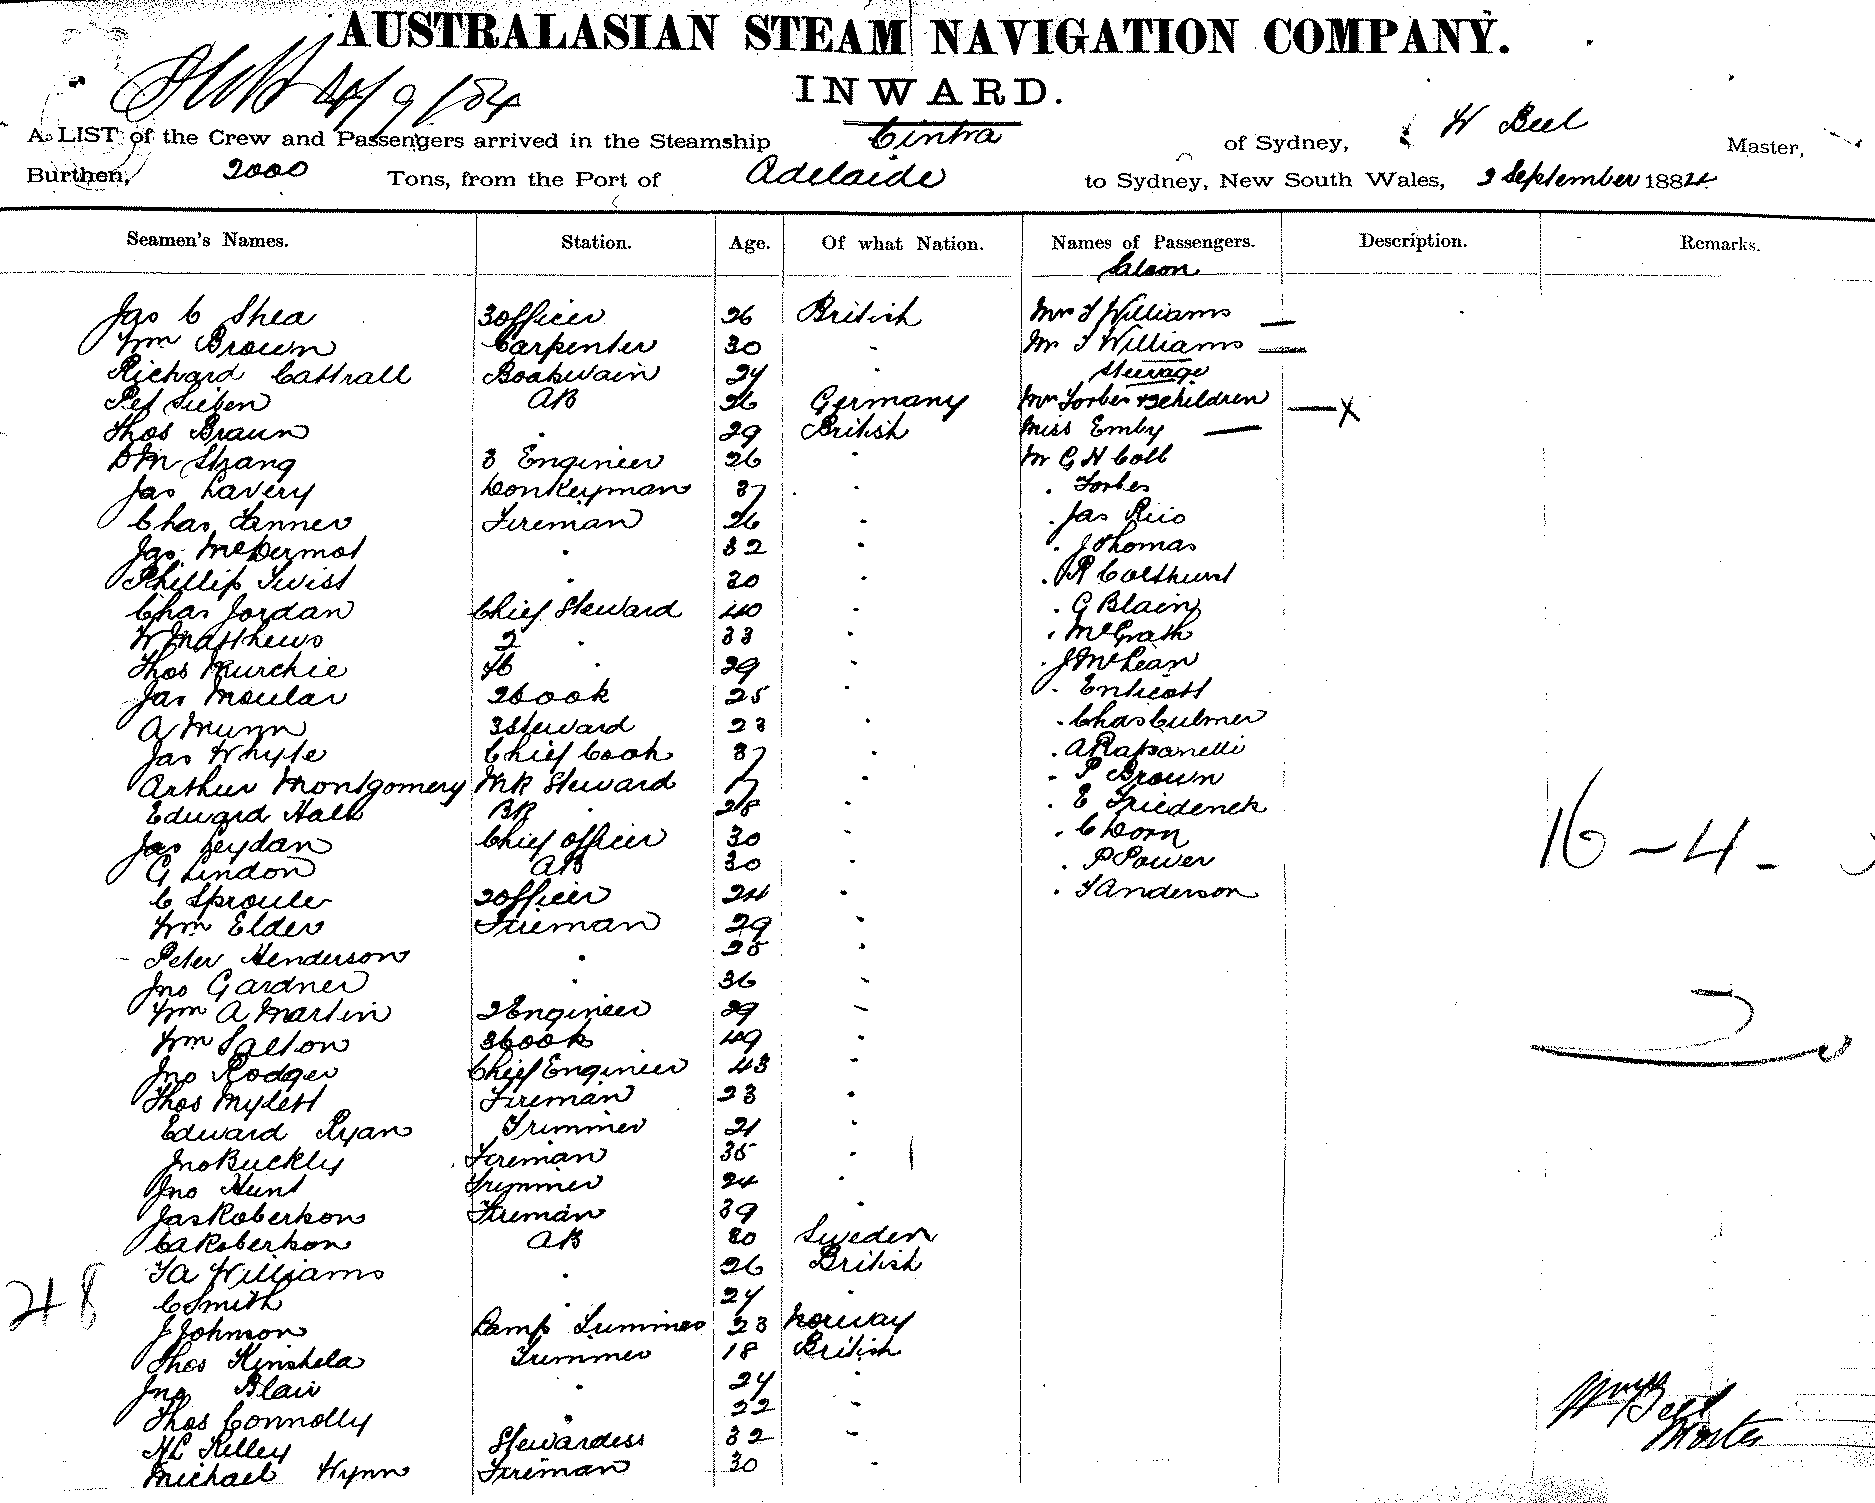 AUSTRALASIAN STEAM NAVIGATION COMPANY.
INWARD.
4/9/84
A LIST of the Crew and Passengers arrived in the Steamship Cintra of Sydney, W Beel Master,
Burthen, 2000 Tons, from the Port of Adelaide to Sydney, New South Wales, 2 September 1884
Seamen's Names. Station. Age. Of what Nation. Names of Passengers. Description. Remarks.
Saloon
Jas C Shea 3 officer 26 British Mrs T Williams —
Wm Brown Carpenter 30 " Mr T Williams —
Richard Cattrall Boatswain 24 " Steerage
Pet Sieben AB 26 Germany Mrs Forbes & 3 children — x
Thos Braun " 29 British Miss Emby —
D M Strang 3 Engineer 26 " Mr G H Coll
Jas Lavery Donkeyman 37 " " Forbes
Chas Tanner Fireman 26 " " Jas Rice
Jas McDermot " 32 " " J Thomas
Phillip Twist " 30 " R Colthurst
Chas Jordan Chief Steward 40 " " G Blain
W Matthews 2 " 33 " " McGrath
Thos Murchie 4th " 29 " " J McLean
Jas Moular 2 Cook 25 " " Enticott
A Munn 3 Steward 23 " " Chas Culmer
Jas Whyte Chief Cook 37 " " A Rapsanelli
Arthur Montgomery MR Steward " " P Brown
Edward Hall BR " 28 " " E Friedench
Jas Leydan Chief officer 30 " " C Dorn
G Lindon AB 30 " " P Power
C Sproule 2 officer 24 " " T Anderson
16 - 4 -
Wm Elder Fireman 29 "
Peter Henderson " 25 "
Jno Gardner " 36 "
Wm A Martin 2 Engineer 29 "
Wm Salton 3 Cook 49 "
Jno Rodger Chief Engineer 43 "
Thos Mylett Fireman 23 "
Edward Ryan Trimmer 21 "
Jno Buckly Fireman 35 "
Jno Hunt Trimmer 24 "
Jas Robertson Fireman 39 "
C A Robertson AB 20 Sweden
T A Williams " 26 British
C Smith " 24
48
J Johnson Lamp Trimmer 23 Norway
Thos Kinshela Trimmer 18 British
Jno Blair " 24 "
Thos Connolly " 22 "
Kelley Stewardess 32 "
Michael Wynn Fireman 30 "
Wm Beel
Master